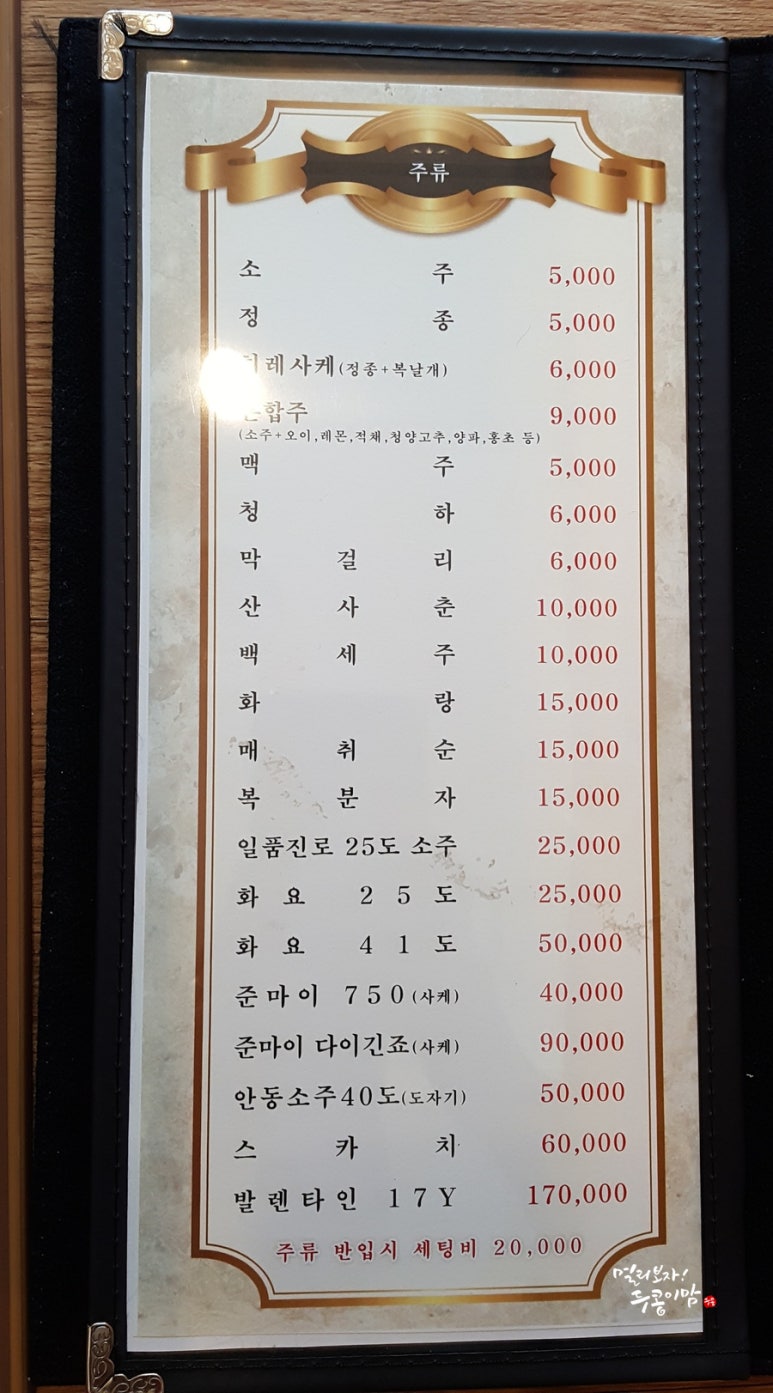 주류
소주 5,000
정종 5,000
레사케(정종+복날개) 6,000
합주 9,000
(소주+오이,레몬,적채,청양고추,양파,홍초 등)
맥주 5,000
청하 6,000
막걸리 6,000
산사춘 10,000
백세주 10,000
화랑 15,000
매취순 15,000
복분자 15,000
일품진로 25도 소주 25,000
화요 25도 25,000
화요 41도 50,000
준마이 750(사케) 40,000
준마이 다이긴죠(사케) 90,000
안동소주40도(도자기) 50,000
스카치 60,000
발렌타인 17Y 170,000
주류 반입시 세팅비 20,000
멀리보자!
두콩이맘